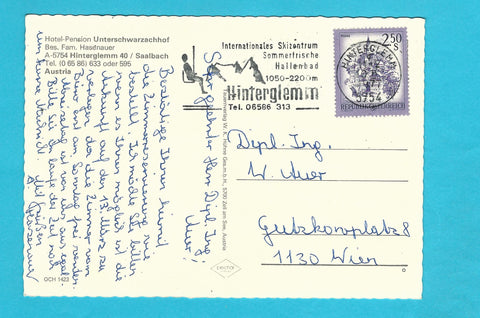 Hotel-Pension Unterschwarzachhof
Bes. Fam. Hasenauer
A-5754 Hinterglemm 40 / Saalbach
Tel. (0 65 86) 633 oder 595
Austria
Internationales Skizentrum
Sommerfrische
Hallenbad
1050-2200m
Hinterglemm
Tel. 06586 313
2.50
S
REPUBLIK ÖSTERREICH
HINTERGLEMM
5754
Sehr geehrter Herr Dipl. Ing.
Auer!
Bestätige Ihnen hiemit
die Zimmerreservierung wie
bestellt. Ich möchte Sie bitten
wenn es Ihnen möglich ist die
Ankunft auf den 13. März zu
verlegen da die Zimmer von
Büro erst am Sonntag frei werden.
Bitte Sie im laufe der Zeit noch
um kurze Nachricht. Mit Grüßen
Dipl. Ing.
W. Auer
Gutzkowplatz 8
1130 Wien
OCH 1423